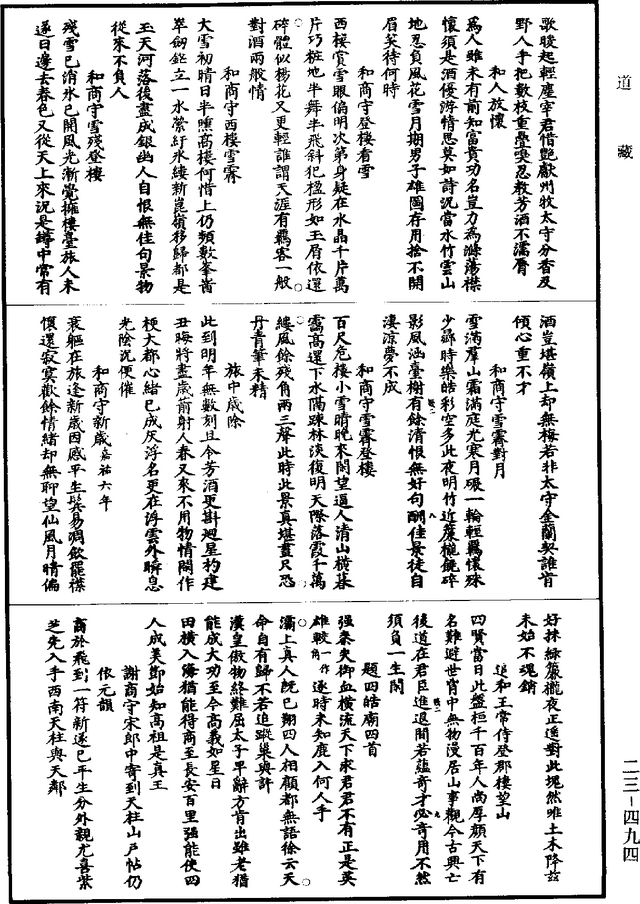 道藏
歌晚起輕塵宰君惜艷獻州牧太守分香及
野人手把數枝重疊嗅忍教芳酒不濡脣
和人放懷
為人雖未有前知富貴功名豈力為滌蕩襟
懷須是酒優游情思莫如詩況當水竹雲山
地忍負風花雪月期男子雄圖存用捨不開
眉笑待何時
和商守登樓看雪
西樓賞雪眼偏明次第身疑在水晶千片萬
片巧粧地半舞半飛斜犯楹形如玉屑依還
碎體似楊花又更輕誰謂天涯有羈客一般
對酒兩般情
和商守西樓雪霽
大雪初晴日半曛高樓何惜上仍頻數峯崷
崒劒鋩立一水縈紆氷縷新崑嶺移歸都是
玉天河落後盡成銀幽人自恨無佳句景物
從來不負人
和商守雪殘登樓
殘雪已消氷已開風光漸覺擁樓臺旅人未
遂日邊去春色又從天上來況是罇中常有
酒豈堪嶺上却無梅若非太守金蘭契誰肯
傾心重不才
和商守雪霽對月
雪滿羣山霜滿庭光寒月碾一輪輕羈懷殊
少尋時樂皓彩空多此夜明竹近簾櫳饒碎
影風涵臺榭有餘清恨無好句酬佳景徒自
淒涼夢不成
和商守雪霽登樓
百尺危樓小雪晴晚來閑望逼人清山橫暮
靄高還下水隔疎林淡復明天際落霞千萬
縷風餘殘角兩三聲此時此景真堪畫只恐
丹青筆未精
旅中歲除
此到明年無數刻且令芳酒更斟迴星杓建
丑晦將盡歲箭射人春又來不用物情閑作
梗大都心緒已成灰浮名更在浮雲外瞬息
光陰況便催
和商守新歲嘉祐六年
衰軀在旅逢新歲因感平生鬂易凋飲罷襟
懷還寂寞歡餘情緒却無聊望仙風月晴偏
好抹綠簾櫳夜正遙對此塊然唯土木降玆
未始不魂銷
追和王常侍登郡樓望山
四賢當日此盤桓千百年人尚厚顏天下有
名難避世胷中無物漫居山事觀今古興亡
後道在君臣進退間若蘊奇才必奇用不然
須負一生閑
題四皓廟四首
强秦失御血橫流天下求君君不有正是英
雄較一作角逐時未知鹿入何人手
灞上真人旣已翔四人相顧都無語徐云天
命自有歸不若追蹤巢與許
漢皇傲物終難屈太子卑辭方肯出雖老猶
能成大功至今高義如星日
田橫入海猶能得商至長安百里强能使四
人成美節始知高祖是真王
謝商守宋郎中寄到天柱山戶帖仍
依元韻
商於飛到一符新遂已平生分外親尤喜紫
芝先入手西南天柱與天鄰
二三-四九四